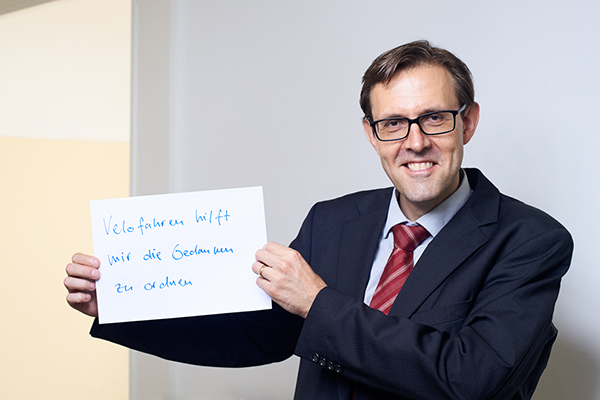 Velofahren hilft
mir die Gedanken
zu ordnen